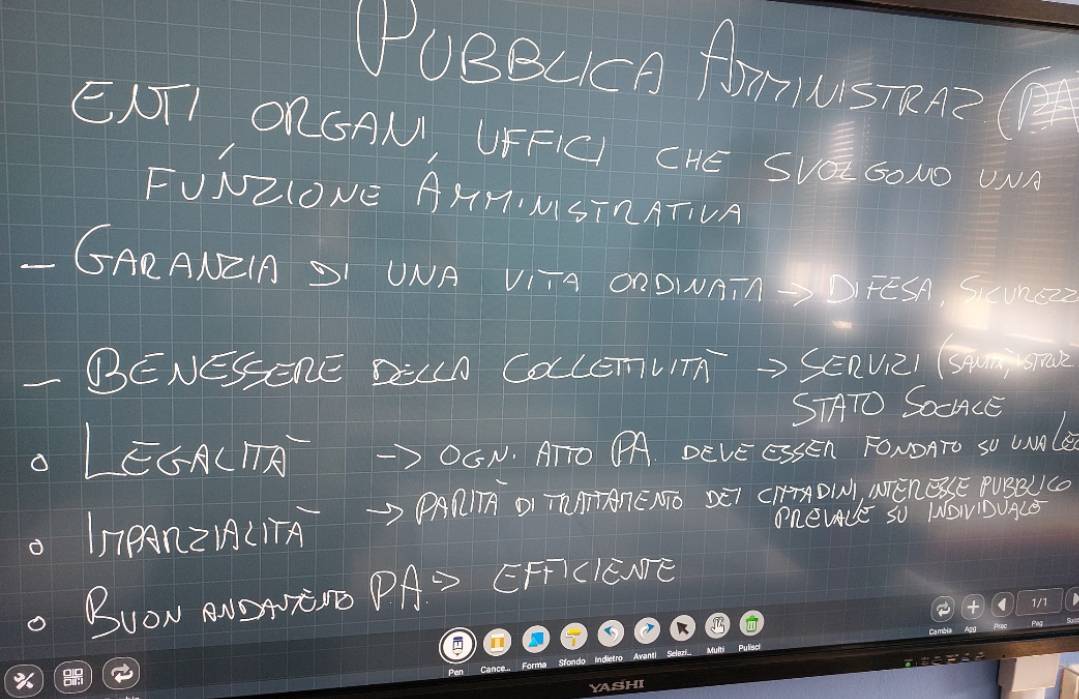 PUBBLICA AMMINISTRAZ. (PA
ENTI, ORGANI, UFFICI CHE SVOLGONO UNA
FUNZIONE AMMINISTRATIVA
- GARANZIA DI UNA VITA ORDINATA -> DIFESA, SICUREZZ
- BENESSERE DELLA COLLETTIVITÀ -> SERVIZI (SANITÀ, ISTRUZ
STATO SOCIALE
o LEGALITÀ -> OGNI ATTO PA. DEVE ESSER FONDATO SU UNA LEG
o IMPARZIALITÀ -> PARITÀ DI TRATTAMENTO DEI CITTADINI, INTERESSE PUBBLICO
PREVALE SU INDIVIDUALE
o BUON ANDAMENTO P.A. -> EFFICIENTE
Pen Cance... Forma Sfondo Indietro Avanti Selezi... Multi Pulisci
Cambia Agg Prec 1/1 Pag Succ
YASHI